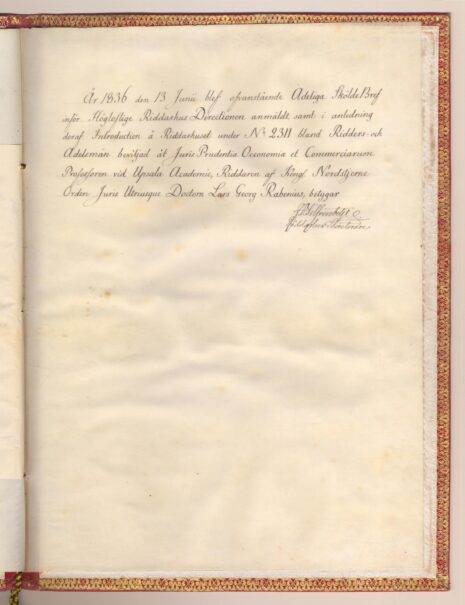 År 1836 den 13 Junii blef ofvanstående Adeliga Sköldebref
inför Höglofliga Riddarhus Directionen anmäldt samt i anledning
deraf Introduction å Riddarhuset under No 2311 bland Ridders- och
Adelsmän beviljad åt Juris Prudentiæ Oeconomiæ et Commerciarum
Professoren vid Upsala Academie, Riddaren af Kongl Nordstjerne
Orden Juris Utriusque Doctorn Lars Georg Rabenius, betygar